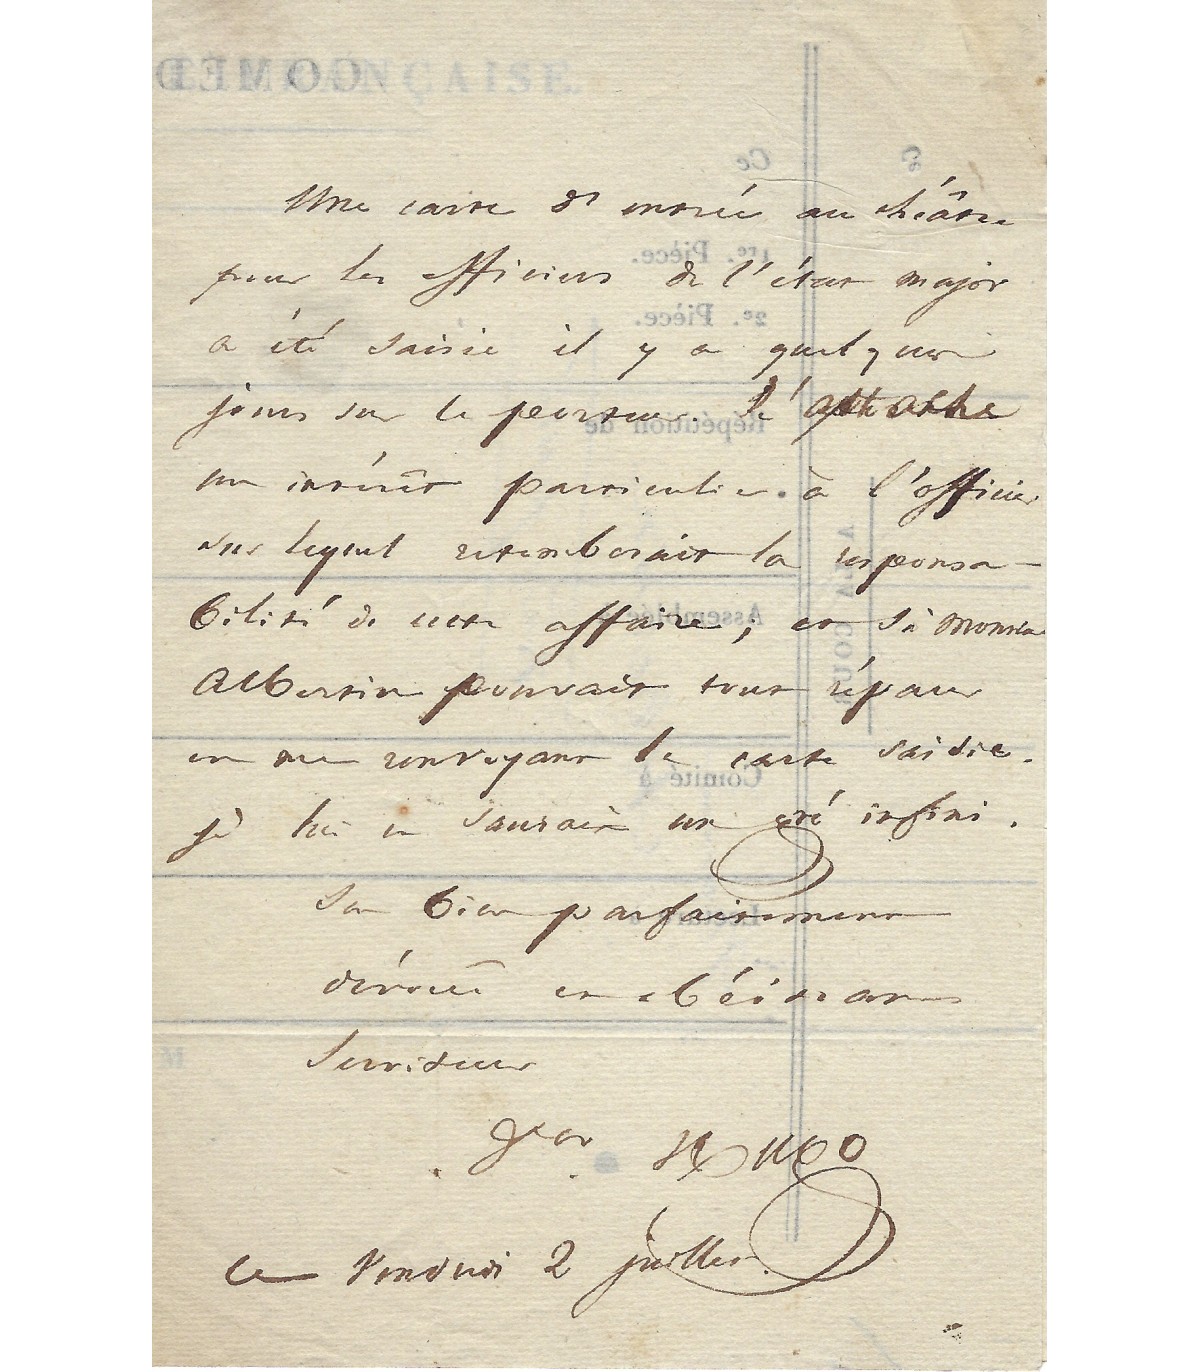 COMÉDIE FRANÇAISE.
Ce
Ce
1re. Pièce.
2e. Pièce.
Répétition de
Assemblée
A LA COUR
Comité à
Lecture
M
Une carte d'entrée au théâtre
pour les officiers de l'état major
a été saisie il y a quelques
jours sur le porteur. S'attache
un intérêt particulier à l'officier
sur lequel retomberait la responsa-
bilité de cette affaire; et si Monsieur
Albertin pouvait tout réparer
en me renvoyant la carte saisie.
je lui en saurais un gré infini.
Son bien parfaitement
dévoué et obéissant
Serviteur
Hugo
ce Vendredi 2 juillet.